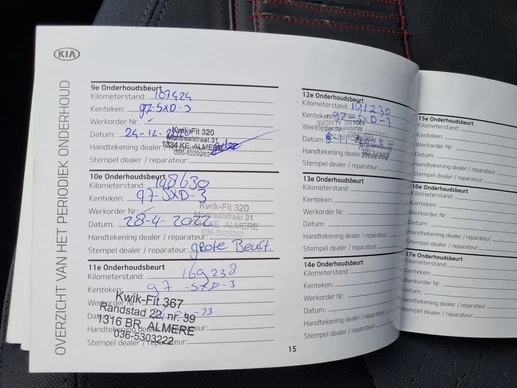 KIA
OVERZICHT VAN HET PERIODIEK ONDERHOUD
9e Onderhoudsbeurt
Kilometerstand: 107424
Kenteken: 97-SXD-3
Werkorder Nr
Datum: 24-12-
Kwik-Fit 320
Montrealstraat 31
1334 KE ALMERE
036-5325262
Handtekening dealer
Stempel dealer / reparateur
10e Onderhoudsbeurt
Kilometerstand: 148630
Kenteken: 97-SXD-3
Werkorder Nr
Kwik-Fit 320
Montrealstraat 31
ALMERE
Datum: 28-4-2022
Handtekening dealer / reparateur
Stempel dealer / reparateur: grote Beurt
11e Onderhoudsbeurt
Kilometerstand: 169238
Kenteken: 97-SXD-3
Kwik-Fit 367
Randstad 22 nr. 39
1316 BR ALMERE
036-5303222
reparateur
15
12e Onderhoudsbeurt
Kilometerstand:
Kenteken:
Werkorder Nr
Datum:
Handtekening dealer / reparateur
Stempel dealer / reparateur:
13e Onderhoudsbeurt
Kilometerstand:
Kenteken:
Werkorder Nr:
Datum:
Handtekening dealer / reparateur
Stempel dealer / reparateur:
14e Onderhoudsbeurt
Kilometerstand:
Kenteken:
Werkorder Nr:
Datum:
Handtekening dealer / reparateur
Stempel dealer / reparateur:
15e Onderhoudsbeurt
Kilometerstand:
Kenteken:
Werkorder Nr:
Datum:
Handtekening dealer
Stempel dealer / rep
16e Onderhoudsbeurt
Kilometerstand:
Kenteken:
Werkorder Nr:
Datum:
Handtekening dealer
Stempel dealer / rep
17e Onderhoudsbeurt
Kilometerstand:
Kenteken:
Werkorder Nr:
Datum:
Handtekening dealer
Stempel dealer / re